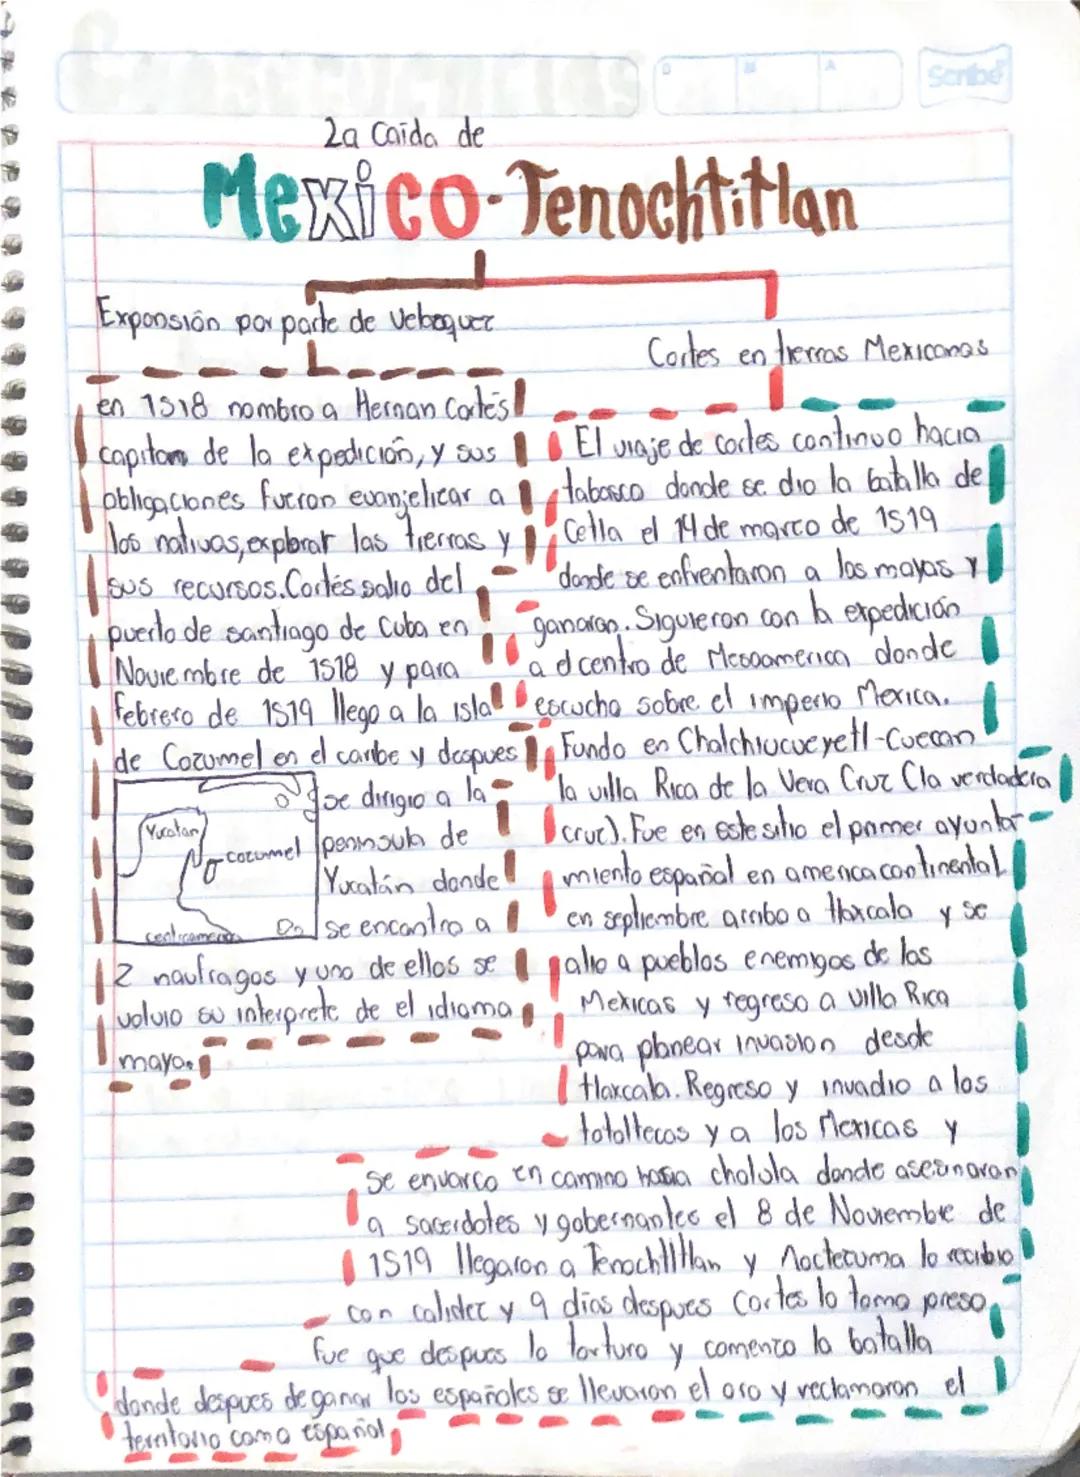 Scribe
D M A
La Caida de
Mexico-Tenochtitlan
Exponsión por parte de Vebaquez
en 1518 nombro a Hernan Cortés
capitan de la expedición, y sus
obligaciones fueron evanjelicar a
los nativas, explorar las tierras y
sus recursos. Cortés salio del
puerto de santiago de Cuba en
Noviembre de 1518 y para
febrero de 1519 llego a la isla
de Cozumel en el caribe y despues
se dirigio a la
peninsula de
Yucatán donde
se encontro a
2 naufragos y uno de ellos se
volvio su interprete de el idioma
maya.
Yucatan
cozumel
centroamerica
Cortes en tierras Mexicanas
El viaje de cortes continuo hacia
tabasco donde se dio la batalla de
Cetla el 14 de marco de 1519
donde se enfrentaron a los mayas y
ganaron. Siguieron con la expedición
a el centro de Mesoamerica donde
escucho sobre el imperio Mexica.
Fundo en Chalchiucueyetl-Cuecan
la villa Rica de la Vera Cruz (la verdadera
cruz). Fue en este sitio el primer ayunta-
miento español en america continental
en septiembre arribo a tlaxcala y se
alio a pueblos enemigos de los
Mexicas y regreso a villa Rica
para planear invasion desde
tlaxcala. Regreso y invadio a los
totoltecas y a los Mexicas y
se envarco en camino hacia cholula donde asesinaron
a sacerdotes y gobernantes el 8 de Noviembre de
1519 llegaron a Tenochtitlan y Moctezuma lo recibio
con calidez y 9 días despues Cortes lo tomo preso,
fue que despues lo torturo y comenzo la batalla
donde despues de ganar los españoles se llevaron el oro y reclamaron el
territorio como español,